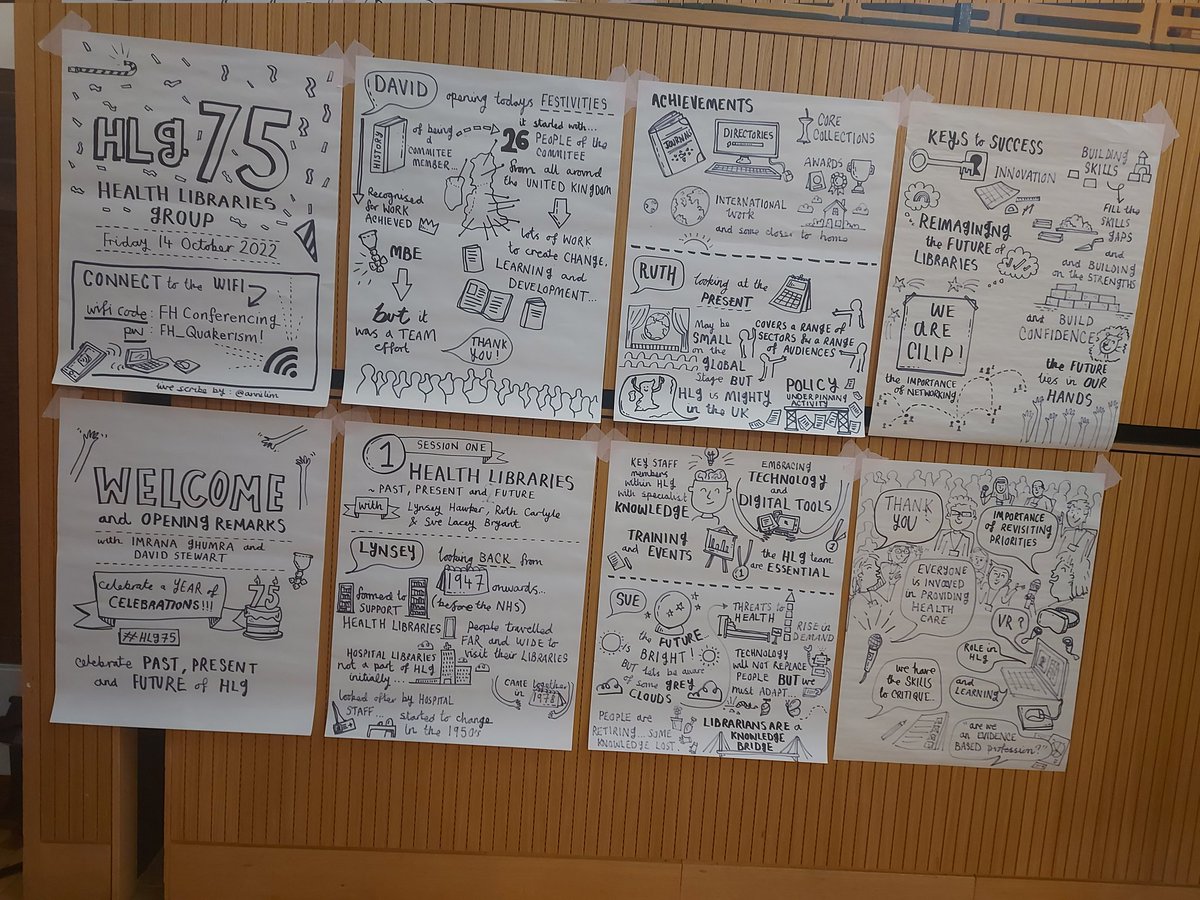 HLG 75
HEALTH LIBRARIES
GROUP
Friday 14 October 2022
CONNECT to the WIFI
wifi code: FH Conferencing
pw: FH_Quakerism!
live scribe by: @annilim
DAVID
opening todays FESTIVITIES
HISTORY
of being
a
commitee
member...
it started with...
26 PEOPLE of the
COMMITEE
from all around
the UNITED KINGDOM
Recognised
for WORK
ACHIEVED
MBE
but it
was a TEAM
effort
lots of WORK
to create CHANGE,
LEARNING and
DEVELOPMENT...
THANK
YOU!
ACHIEVEMENTS
JOURNAL
DIRECTORIES
CORE
COLLECTIONS
AWARDS
INTERNATIONAL
WORK
and some closer to home
RUTH
looking at the
PRESENT
May be
SMALL
on the
GLOBAL
Stage BUT
HLG is MIGHTY
in the UK
COVERS A RANGE of
SECTORS for A RANGE
of AUDIENCES
POLICY
UNDERPINNING
ACTIVITY
KEYS to SUCCESS
INNOVATION
BUILDING
SKILLS
FILL the
SKILLS
GAPS
and
and BUILDING
on the STRENGTHS
and BUILD
CONFIDENCE
REIMAGINING
the FUTURE of
LIBRARIES
WE
ARE
CILIP!
the IMPORTANCE
of NETWORKING
the FUTURE
lies in OUR
HANDS
WELCOME
and OPENING REMARKS
with IMRANA GHUMRA and
DAVID STEWART
Celebrate a YEAR of
CELEBRATIONS!!!
75
#HLG75
Celebrate PAST, PRESENT
and FUTURE of HLG
1
SESSION ONE
HEALTH LIBRARIES
~ PAST, PRESENT and FUTURE
with
Lynsey Hawker, Ruth Carlyle
& Sue Lacey Bryant
LYNSEY
looking BACK from
1947 onwards...
(before the NHS)
formed to
SUPPORT
HEALTH LIBRARIES
people travelled
FAR and WIDE to
visit their LIBRARIES
HOSPITAL LIBRARIES
not a part of HLG
initially...
looked after by HOSPITAL
STAFF... started to change
in the 1950s
CAME together
in 1978
KEY STAFF
members
within HLG
with specialist
KNOWLEDGE
EMBRACING
TECHNOLOGY
and
DIGITAL TOOLS
TRAINING
and EVENTS
the HLG team
are ESSENTIAL
SUE
the FUTURE
is BRIGHT!
BUT lets be aware
of some GREY
CLOUDS
PEOPLE are
RETIRING... SOME
KNOWLEDGE LOST
THREATS to
HEALTH
RISE in
DEMAND
TECHNOLOGY
will NOT REPLACE
PEOPLE BUT we
must ADAPT...
LIBRARIANS ARE a
KNOWLEDGE
BRIDGE
THANK
YOU
IMPORTANCE
of REVISITING
PRIORITIES
EVERYONE
is INVOLVED
in PROVIDING
HEALTH
CARE
VR?
ROLE in
HLG
and
LEARNING
we have
the SKILLS
to CRITIQUE...
"are we
an EVIDENCE
BASED profession?"